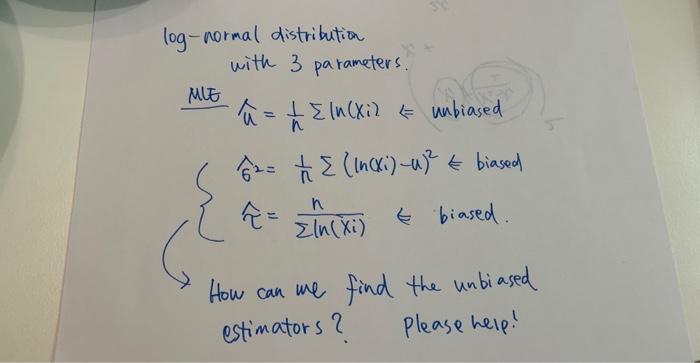 log-normal distribution
with 3 parameters.
MLE
û = 1/n Σ ln(Xi) ⇐ unbiased
σ̂² = 1/n Σ (ln(Xi)-u)² ⇐ biased
τ̂ = n / Σ ln(Xi) ⇐ biased.
How can we find the unbiased
estimators? Please help!